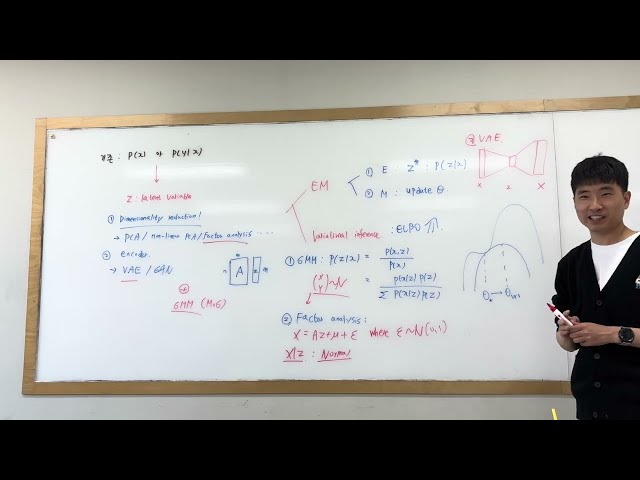 기존 : P(x) or P(y|x)
Z : latent variable
① Dimensionality reduction!
→ PCA / non-linear PCA / Factor analysis ....
② encoder.
→ VAE / GAN
⊕
GMM (MoG)
n A m
EM
① E : Z* : P(z|x)
② M : update θ.
Variational inference : ELBO ⇑.
① GMM : P(z|x) = P(x,z) / P(x)
(X Y) ~ N = P(x|z) P(z) / Σ P(x|z) P(z)
② Factor analysis :
X = AZ + μ + ε where ε~N(0,1)
X|Z : Normal
③ VAE
x z X
θt → θt+1